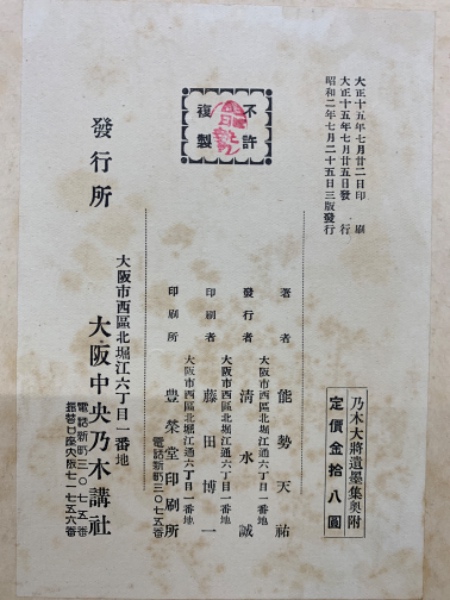 大正十五年七月廿二日印刷
大正十五年七月廿五日發行
昭和二年七月二十五日三版發行
乃木大將遺墨集奧附
定價金拾八圓
不許
複製
著者 能勢天祐
大阪市西區北堀江通六丁目一番地
發行者 淸水誠
大阪市西區北堀江通六丁目一番地
印刷者 藤田博一
大阪市西區北堀江通六丁目一番地
印刷所 豊榮堂印刷所
電話新町三〇七五番
發行所
大阪市西區北堀江六丁目一番地
大阪中央乃木講社
電話新町三〇七五番
振替口座大阪七一七五六番